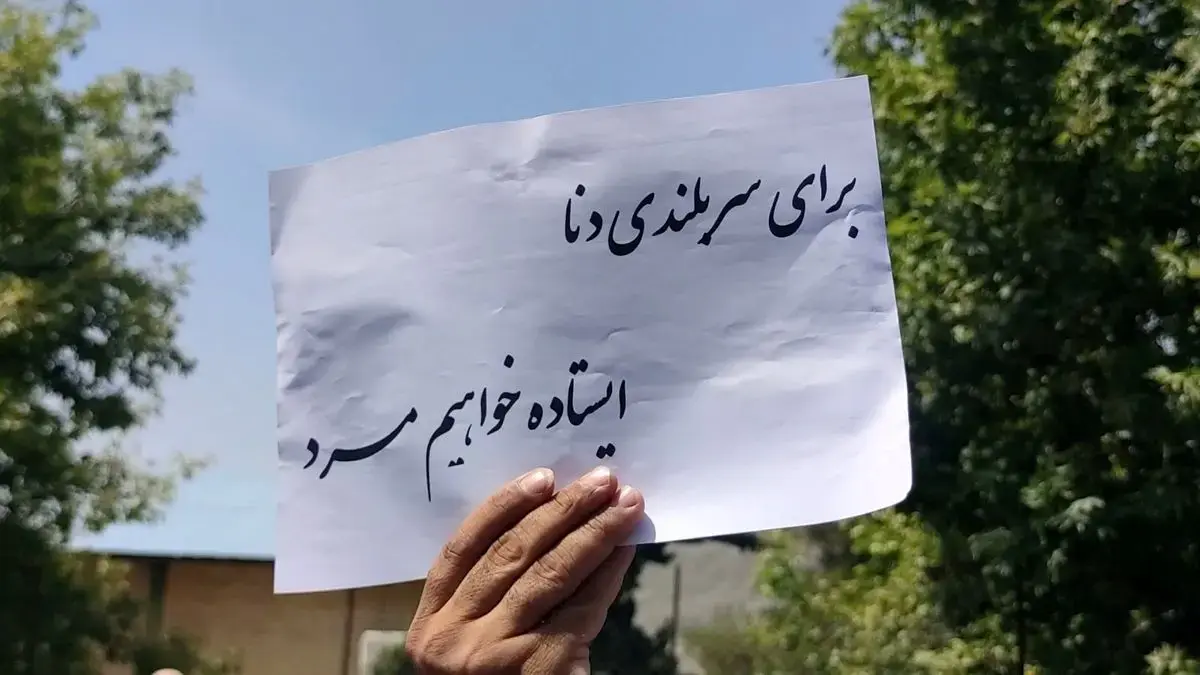 برای سربلندی دنا
ایستاده خواهیم مرد